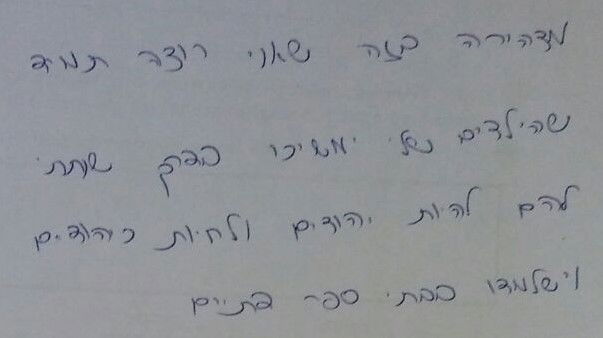 מצהירה בזה שאני רוצה תמיד
שהילדים שלי ימשיכו בדרך שנתתי
להם להיות יהודים ולחיות כיהודים
וישלמדו בבתי ספר דתיים